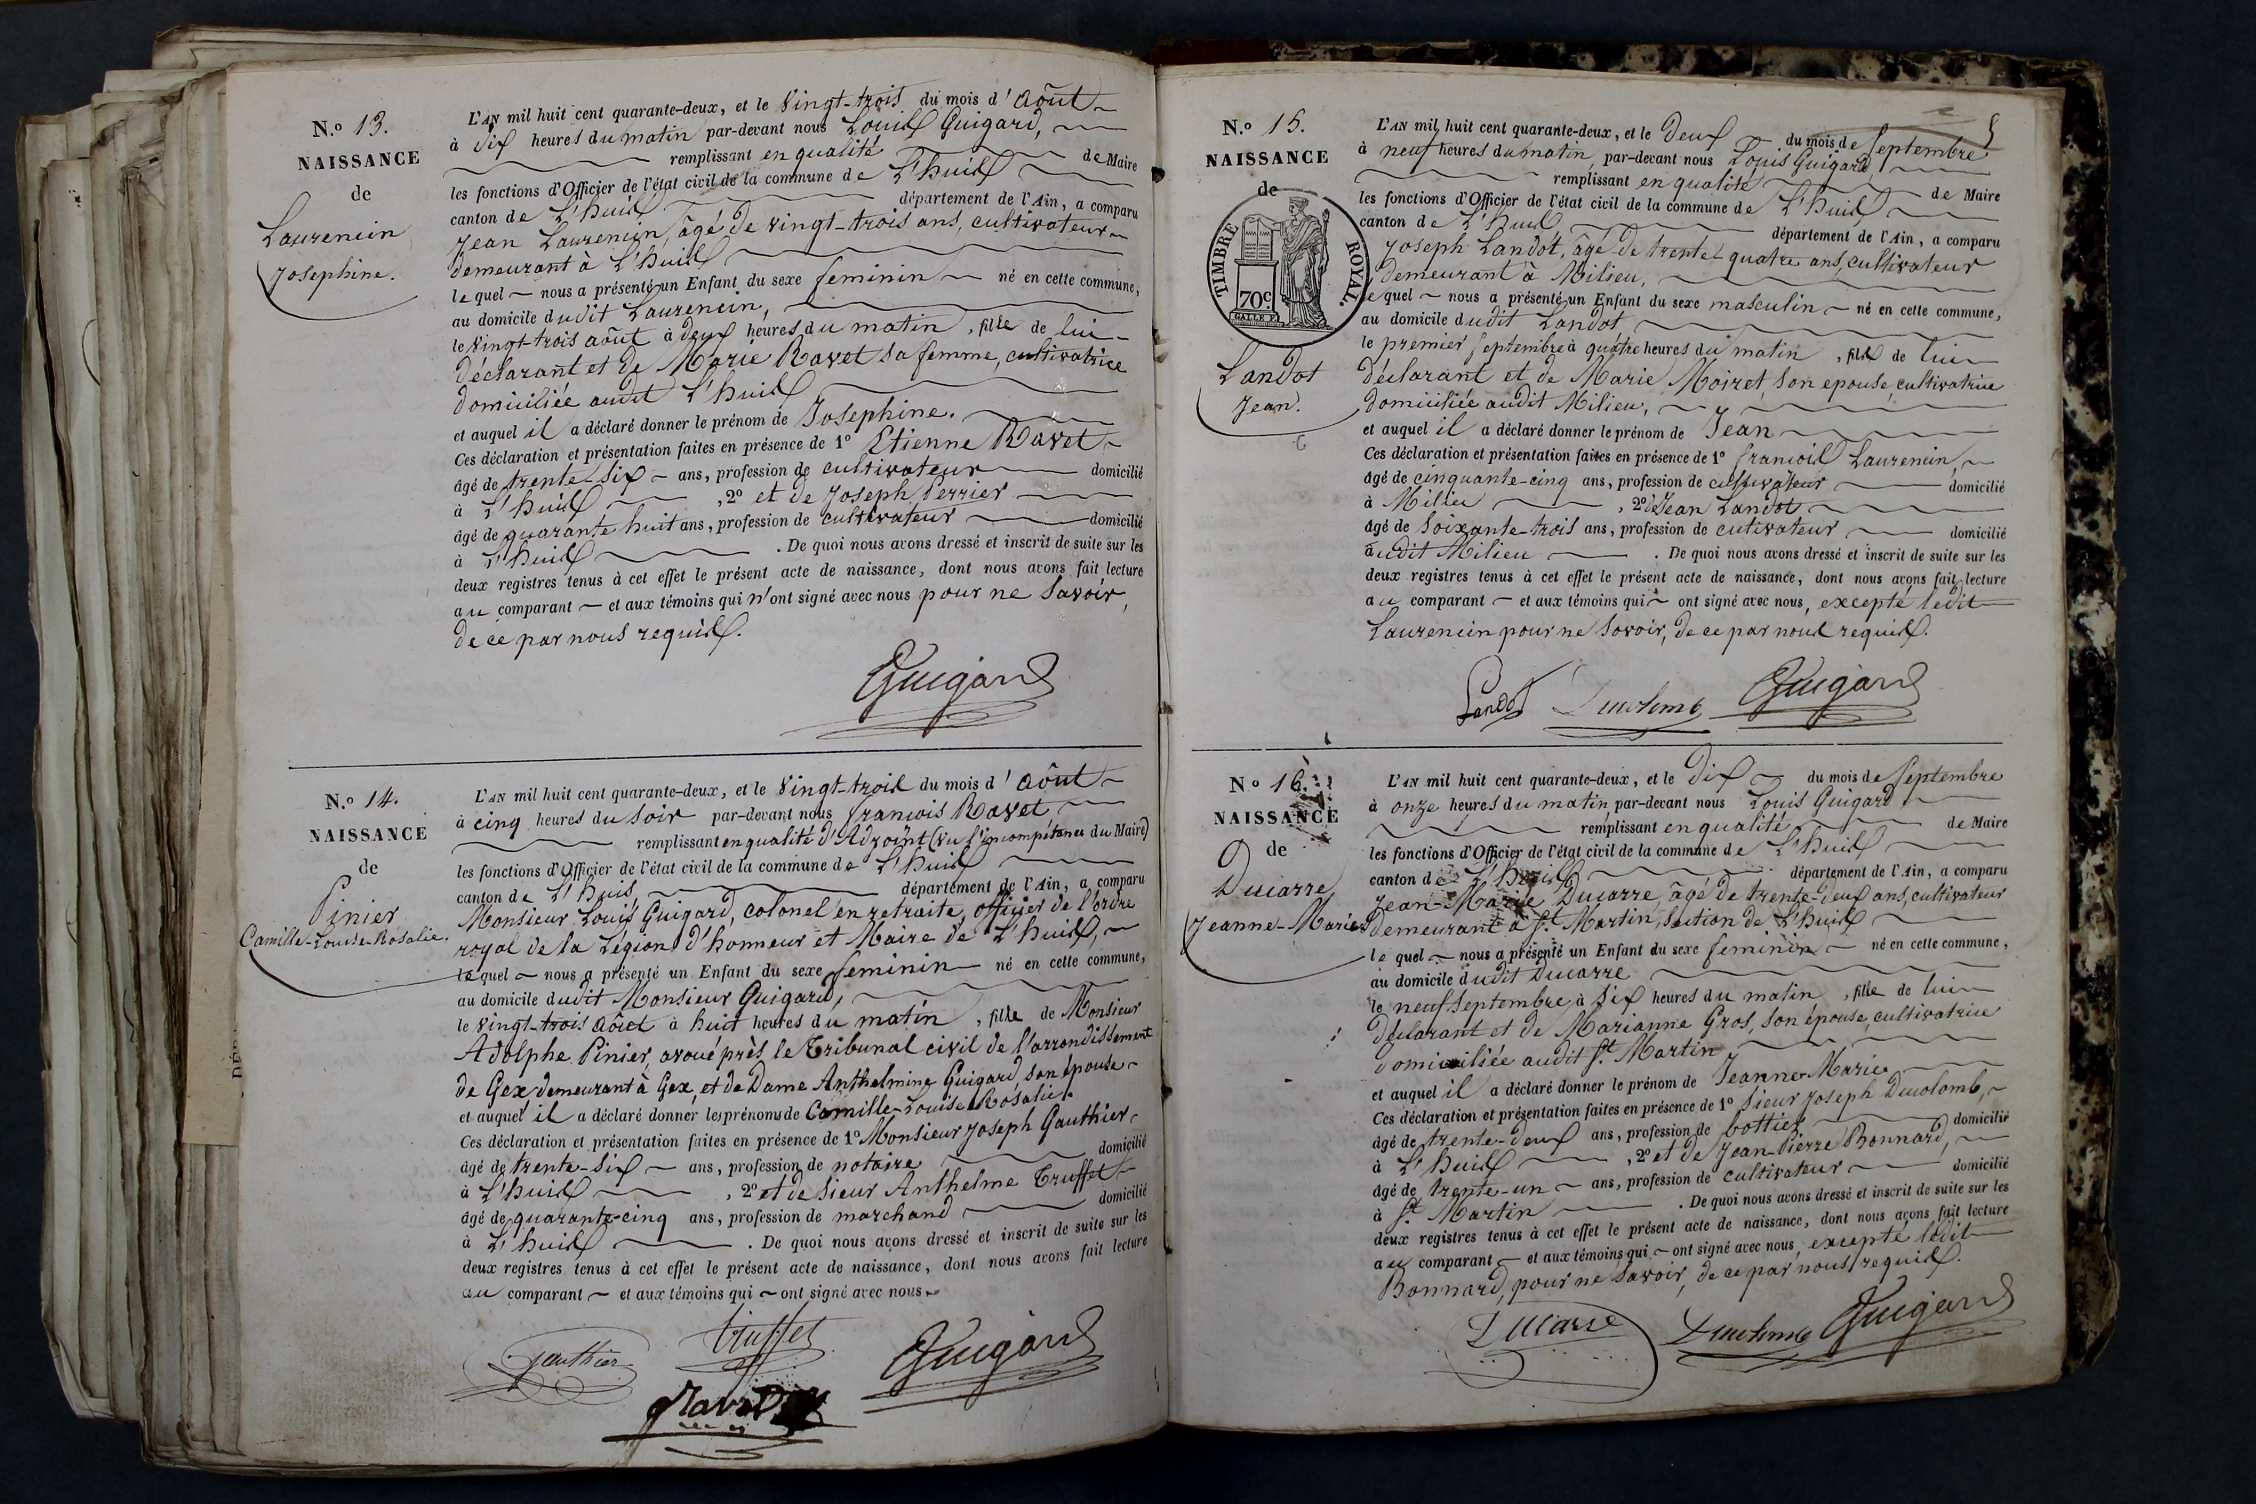 N.o 13.
NAISSANCE
de
Laurencin
Josephine.
L'AN mil huit cent quarante-deux, et le Vingt-trois du mois d'Aôut
à dix heures du matin par-devant nous Louis Guigard,
remplissant en qualité de Maire
les fonctions d'Officier de l'état civil de la commune de L'huis
canton de L'huis département de l'Ain, a comparu
Jean Laurencin, âgé de vingt-trois ans, cultivateur
demeurant à L'huis
lequel nous a présenté un Enfant du sexe feminin né en cette commune,
au domicile dudit Laurencin,
le vingt trois août à deux heures du matin, fille de lui
déclarant et de Marie Ravet sa femme, cultivatrice
domiciliée audit L'huis
et auquel il a déclaré donner le prénom de Josephine.
Ces déclaration et présentation faites en présence de 1o Etienne Ravet
âgé de trente-six ans, profession de cultivateur domicilié
à L'huis, 2o et de Joseph Perrier
âgé de quarante huit ans, profession de cultivateur domicilié
à L'huis. De quoi nous avons dressé et inscrit de suite sur les
deux registres tenus à cet effet le présent acte de naissance, dont nous avons fait lecture
au comparant et aux témoins qui n'ont signé avec nous pour ne Savoir,
de ce par nous requis.
Guigard
N.o 14.
NAISSANCE
de
Pinier
Camille-Louise-Rosalie.
L'AN mil huit cent quarante-deux, et le Vingt-trois du mois d'Aôut
à cinq heures du soir par-devant nous françois Ravet,
remplissant en qualité d'Adjoint (vu l'incompétence du Maire)
les fonctions d'Officier de l'état civil de la commune de L'huis
canton de L'huis, département de l'Ain, a comparu
Monsieur Louis Guigard, colonel en retraite, officier de l'ordre
royal de la Légion d'honneur et Maire de L'huis,
lequel nous a présenté un Enfant du sexe feminin né en cette commune,
au domicile dudit Monsieur Guigard,
le vingt-trois Aôut à huit heures du matin, fille de Monsieur
Adolphe Pinier, avoué près le Tribunal civil de l'arrondissement
de Gex, demeurant à Gex, et de Dame Anthelmine Guigard, son épouse
et auquel il a déclaré donner les prénoms de Camille-Louise-Rosalie.
Ces déclaration et présentation faites en présence de 1o Monsieur Joseph Gauthier
âgé de trente-six ans, profession de notaire domicilié
à L'huis, 2o et de Sieur Anthelme Truffet
âgé de quarante-cinq ans, profession de marchand domicilié
à L'huis. De quoi nous avons dressé et inscrit de suite sur les
deux registres tenus à cet effet le présent acte de naissance, dont nous avons fait lecture
au comparant et aux témoins qui ont signé avec nous
Gauthier Truffet Guigard
Ravet
5
N.o 15.
NAISSANCE
de
TIMBRE ROYAL.
70c.
Landot
Jean.
L'AN mil huit cent quarante-deux, et le Deux du mois de Septembre
à neuf heures du matin, par-devant nous Louis Guigard,
remplissant en qualité de Maire
les fonctions d'Officier de l'état civil de la commune de L'huis
canton de L'huis département de l'Ain, a comparu
Joseph Landot, âgé de trente quatre ans, cultivateur
demeurant à Milieu,
lequel nous a présenté un Enfant du sexe masculin né en cette commune,
au domicile dudit Landot
le premier Septembre à quatre heures du matin, fils de lui
déclarant et de Marie Moiret, son epouse, cultivatrice
domiciliée audit Milieu,
et auquel il a déclaré donner le prénom de Jean
Ces déclaration et présentation faites en présence de 1o françois Laurencin,
âgé de cinquante-cinq ans, profession de cultivateur domicilié
à Milieu, 2o Jean Landot
âgé de soixante-trois ans, profession de cutivateur domicilié
audit Milieu. De quoi nous avons dressé et inscrit de suite sur les
deux registres tenus à cet effet le présent acte de naissance, dont nous avons fait lecture
au comparant et aux témoins qui ont signé avec nous, excepté ledit
Laurencin pour ne Savoir, de ce par nous requis.
Landot Ducolomb Guigard
No 16.
NAISSANCE
de
Ducarre
Jeanne-Marie
L'AN mil huit cent quarante-deux, et le Dix du mois de Septembre
à onze heures du matin par-devant nous Louis Guigard
remplissant en qualité de Maire
les fonctions d'Officier de l'état civil de la commune de L'huis
canton de L'huis département de l'Ain, a comparu
Jean-Marie Ducarre, âgé de trente-deux ans, cultivateur
demeurant à St Martin, section de L'huis
lequel nous a présenté un Enfant du sexe feminin né en cette commune,
au domicile dudit Ducarre
le neuf Septembre, à six heures du matin, fille de lui
déclarant et de Marianne Gros, son épouse, cultivatrice
domiciliée audit St Martin
et auquel il a déclaré donner le prénom de Jeanne Marie
Ces déclaration et présentation faites en présence de 1o Sieur Joseph Ducolomb,
âgé de trente-deux ans, profession de bottier domicilié
à L'huis, 2o et de Jean-Pierre Bonnard,
âgé de trente-un ans, profession de cultivateur domicilié
à St Martin. De quoi nous avons dressé et inscrit de suite sur les
deux registres tenus à cet effet le présent acte de naissance, dont nous avons fait lecture
au comparant et aux témoins qui ont signé avec nous, excepté ledit
Bonnard, pour ne Savoir, de ce par nous requis.
Ducarre Ducolomb Guigard